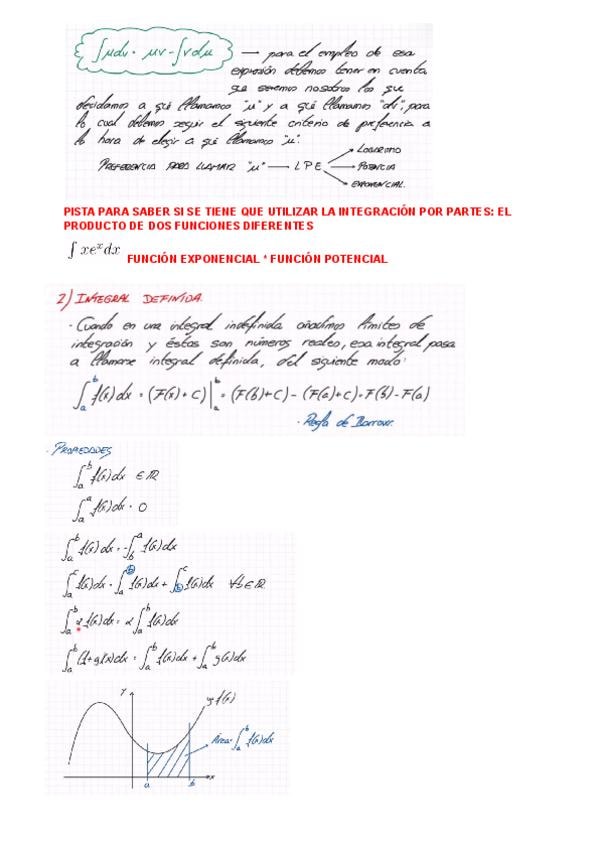 ∫μdv = μv - ∫vdμ → para el empleo de esa
expresión debemos tener en cuenta
que seremos nosotros los que
decidamos a qué llamamos "μ" y a qué llamamos "dv", para
lo cual debemos seguir el siguiente criterio de preferencia a
la hora de elegir a qué llamamos "μ":
PREFERENCIA PARA LLAMAR "μ" → L P E
LOGARITMO
POTENCIA
EXPONENCIAL
PISTA PARA SABER SI SE TIENE QUE UTILIZAR LA INTEGRACIÓN POR PARTES: EL
PRODUCTO DE DOS FUNCIONES DIFERENTES
∫ xeˣdx FUNCIÓN EXPONENCIAL * FUNCIÓN POTENCIAL
2) INTEGRAL DEFINIDA
· Cuando en una integral indefinida añadimos límites de
integración y éstos son números reales, esa integral pasa
a llamarse integral definida, del siguiente modo:
∫ₐᵇ f(x)dx = (F(x)+C)|ₐᵇ = (F(b)+C) - (F(a)+C) = F(b)-F(a)
· Regla de Barrow.
· PROPIEDADES
∫ₐᵇ f(x)dx ∈ ℝ
∫ₐᵃ f(x)dx = 0
∫ₐᵇ f(x)dx = -∫_b^a f(x)dx
∫_a^c f(x)dx = ∫_a^b f(x)dx + ∫_b^c f(x)dx ∀b∈ℝ
∫ₐᵇ αf(x)dx = α∫ₐᵇ f(x)dx
∫ₐᵇ (f+g)(x)dx = ∫ₐᵇ f(x)dx + ∫ₐᵇ g(x)dx
y
y=f(x)
Área: ∫ₐᵇ f(x)dx
a b x